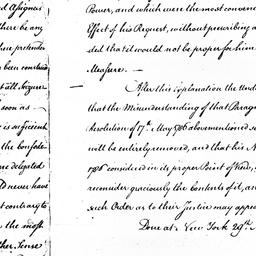 d Assignees
there be any
these pretender
been continued
at all. Segner
soon as
is sufficient
the Confede
are delegated
D never have
not contrary to
the most
ther Sense
Power, and which were the most convenie
Effect of his Request, without prescribing a
ded that it would not be proper for him
Measure. —
After this explanation the Und
that the Misunderstanding of that Parag
Resolution of 17th May 86 abovementioned s
will be entirely removed, and that his N
786 considered in its proper Point of View,
reconsider graciously the Contents of it, an
such Order as to their Justice may appe
Done at New York 29th